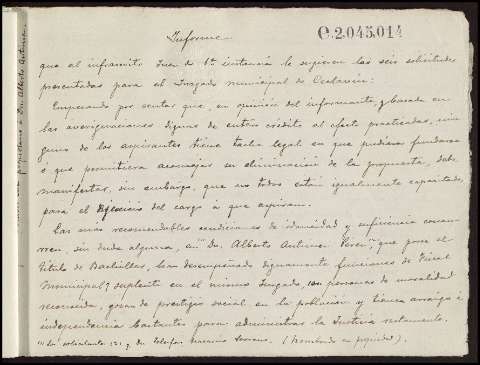 Informe
C.2.045.014
que el infrascrito Juez de 1ª instancia le sugieren las seis solicitudes
presentadas para el Juzgado municipal de Ceclavín:
Empezando por sentar que, en opinión del informante, y basada en
las averiguaciones dignas de entero crédito al efecto practicadas, nin
guno de los aspirantes tiene tacha legal en que pudiera fundarse
ó que permitiera aconsejar su eliminación de la propuesta, debe
manifestar, sin embargo, que no todos están igualmente capacitados
para el Ejercicio del cargo á que aspiran.
Las mas recomendables condiciones de idoneidad y suficiencia concu
rren, sin duda alguna, en Dn. Alberto Antúnez que posee el
título de Bachiller, ha desempeñado dignamente funciones de Fiscal
Municipal suplente en el mismo Juzgado, es persona de moralidad
reconocida, goza de prestigio social en la población y tiene arraigo é
independencia bastantes para administrar la Justicia rectamente.